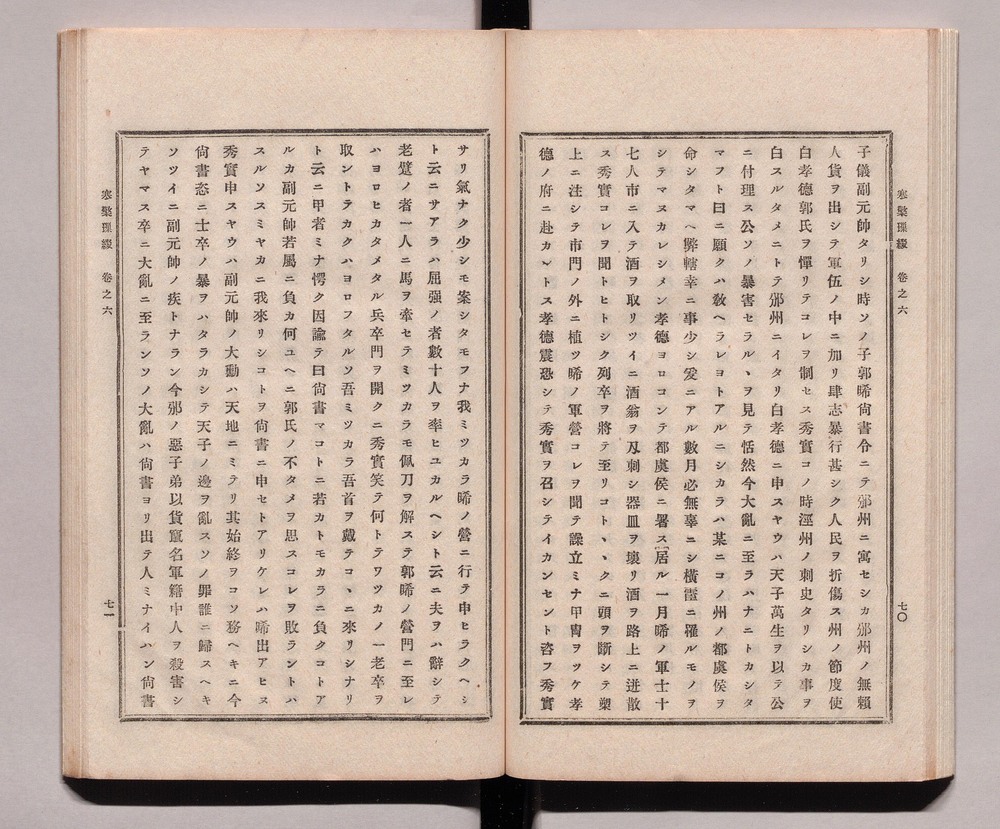 子儀副元帥タリシ時ソノ子郭晞尙書令ニテ邠州ニ寓セシカ邠州ノ無賴
人貨ヲ出シテ軍伍ノ中ニ加リ肆志暴行甚シク人民ヲ折傷ス州ノ節度使
白孝德郭氏ヲ憚リテコレヲ制セス秀實コノ時涇州ノ刺史タリシカ事ヲ
白スルタメニトテ邠州ニイタリ白孝德ニ申スヤウハ天子萬生ヲ以テ公
ニ付理ス公ソノ暴害セラルヽヲ見テ恬然今大亂ニ至ラハナニトカシタ
マフト曰ニ願クハ敎ヘラレヨトアルニシカラハ某ニコノ州ノ都虞侯ヲ
命シタマヘ弊轄幸ニ事少シ爰ニアル數月必無辜ニシ橫𮥼ニ罹ルモノヲ
シテマヌカレシメン孝德ヨロコンテ都虞侯ニ署ス居ル一月晞ノ軍士十
七人市ニ入テ酒ヲ取リツイニ酒翁ヲ刄刺シ器皿ヲ壞リ酒ヲ路上ニ迸散
ス秀實コレヲ聞トヒトシク列卒ヲ將テ至リコトヽヽクニ頭ヲ斷シテ槊
上ニ注シテ市門ノ外ニ植ツ晞ノ軍營コレヲ聞テ譟立ミナ甲冑ヲツケ孝
德ノ府ニ赴カントス孝德震恐シテ秀實ヲ召シテイカンセント咨フ秀實
寒檠璅綴 卷之六
七〇
サリ氣ナク少シモ案シタモフナ我ミツカラ晞ノ營ニ行テ申ヒラクヘシ
ト云ニサアラハ屈强ノ者數十人ヲ率ヒユカルヘシト云ニ夫ヲハ辭シテ
老躄ノ者一人ニ馬ヲ牽セテミツカラモ佩刀ヲ解ステ郭晞ノ營門ニ至レ
ハヨロヒカタメタル兵卒門ヲ開クニ秀實笑テ何トテワツカノ一老卒ヲ
取ントテカクハヨロフタルソ吾ミツカラ吾首ヲ戴テコヽニ來リシナリ
ト云ニ甲者ミナ愕ク因諭テ曰尙書マコトニ若カトモカラニ負クコトア
ルカ副元帥若屬ニ負カ何ユヘニ郭氏ノ不タメヲ思スコレヲ敗ラントハ
スルソスミヤカニ我來リシコトヲ尙書ニ申セトアリケレハ晞出アヒヌ
秀實申スヤウハ副元帥ノ大勳ハ天地ニミテリ其始終ヲコソ務ヘキニ今
尙書恣ニ士卒ノ暴ヲハタラカシテ天子ノ邊ヲ亂スソノ罪誰ニ歸スヘキ
ソツイニ副元帥ノ疾トナラン今邠ノ惡子弟以貨竄名軍籍中人ヲ殺害シ
テヤマス卒ニ大亂ニ至ランソノ大亂ハ尙書ヨリ出テ人ミナイハン尙書
寒檠璅綴 卷之六
七一